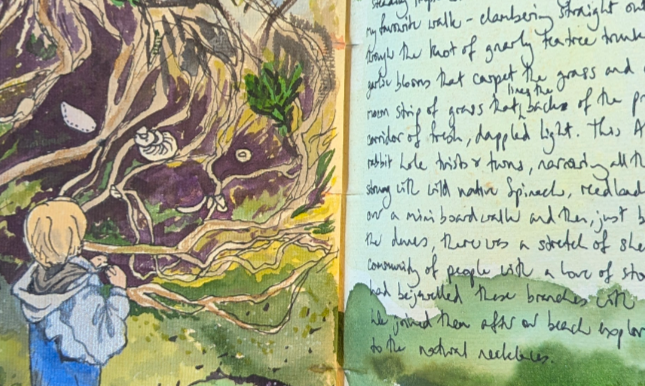 my favourite walk - clambering straight
through the knot of gnarly teatree
garlic blooms that carpet the grass and
strip of grass that lines the backs of the
corridor of fresh, dappled light. This A
rabbit hole twists & turns, narrowing all th
strung with wild native Spinach,
over a mini boardwalk and then, just b
the dunes, there was a stretch of she
community of people with a love of sto
had bejewelled these branches with
We joined them after our beach explor
to the natural necklaces.